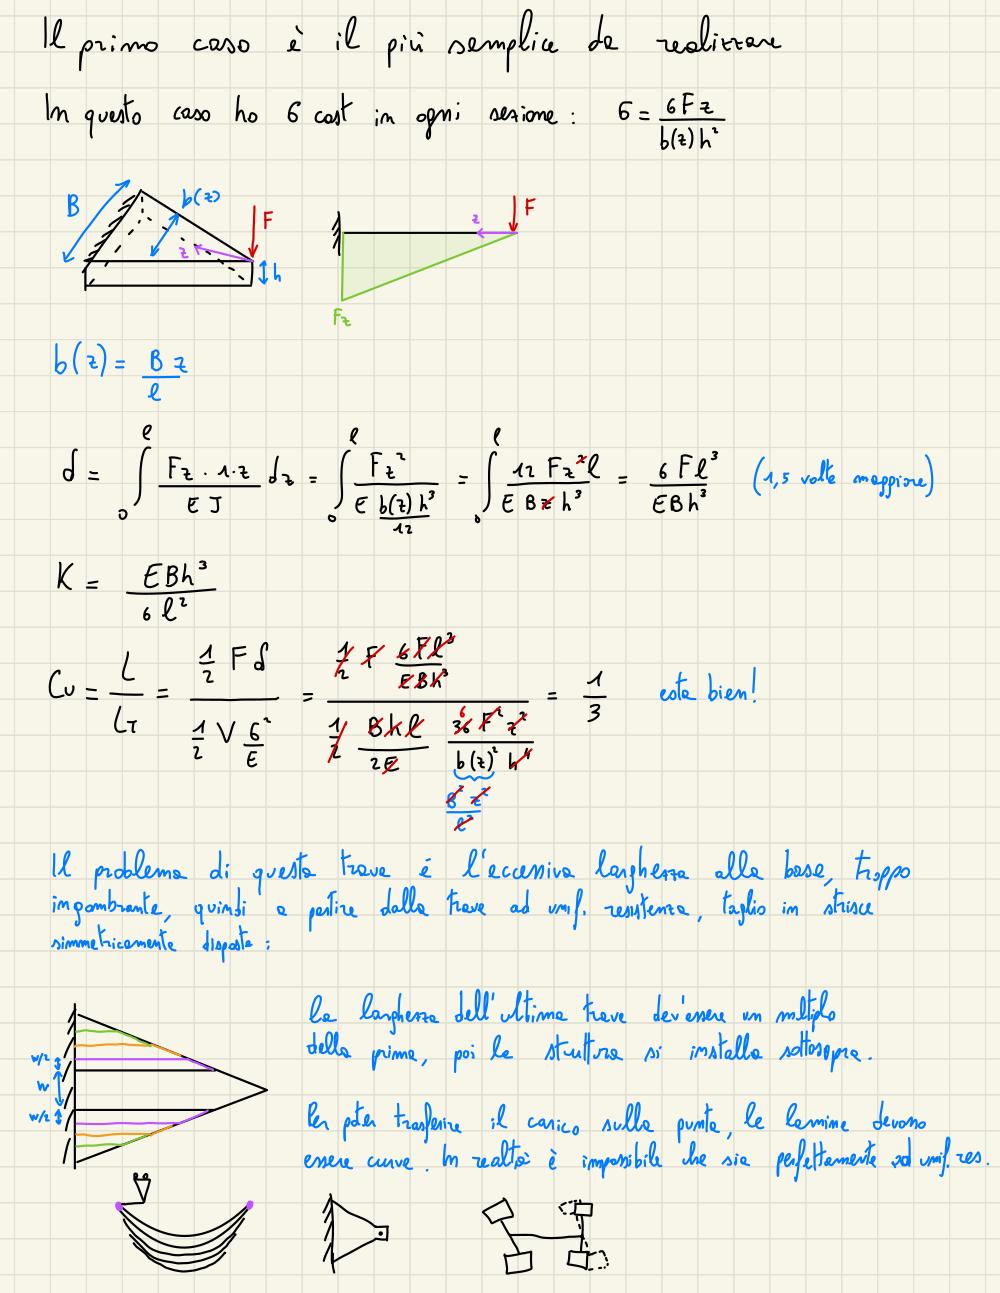 Il primo caso è il più semplice da realizzare
In questo caso ho σ cost in ogni sezione : σ = 6Fz / b(z)h²
B b(z) F z h
z F
Fz
b(z) = B z / l
δ = ∫₀ˡ Fz · 1·z / EJ dz = ∫₀ˡ Fz² / E b(z)h³/12 = ∫₀ˡ 12 Fz² l / E B z h³ = 6 Fl³ / EBh³ (1,5 volte maggiore)
K = EBh³ / 6 l²
Cu = L / Lτ = ½ Fδ / ½ V σ²/E = ½ F 6Fl³/EBh³ / ½ Bhl/2E 36 F² z²/b(z)² h⁴ = 1/3 esta bien!
6
B² z² / l²
Il problema di questa trave é l'eccessiva larghezza alla base, troppo
ingombrante, quindi a partire dalla trave ad unif. resistenza, taglio in strisce
simmetricamente disposte :
La larghezza dell'ultima trave dev'essere un multiplo
della prima, poi la struttura si installa sottosopra.
w/2
w
w/2
Per poter trasferire il carico sulla punta, le lamine devono
essere curve. In realtà è impossibile che sia perfettamente ad unif. res.